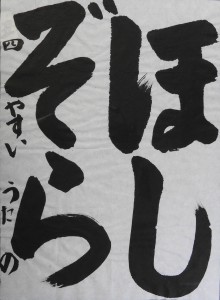 ほし
ぞら
四 やすい うたの